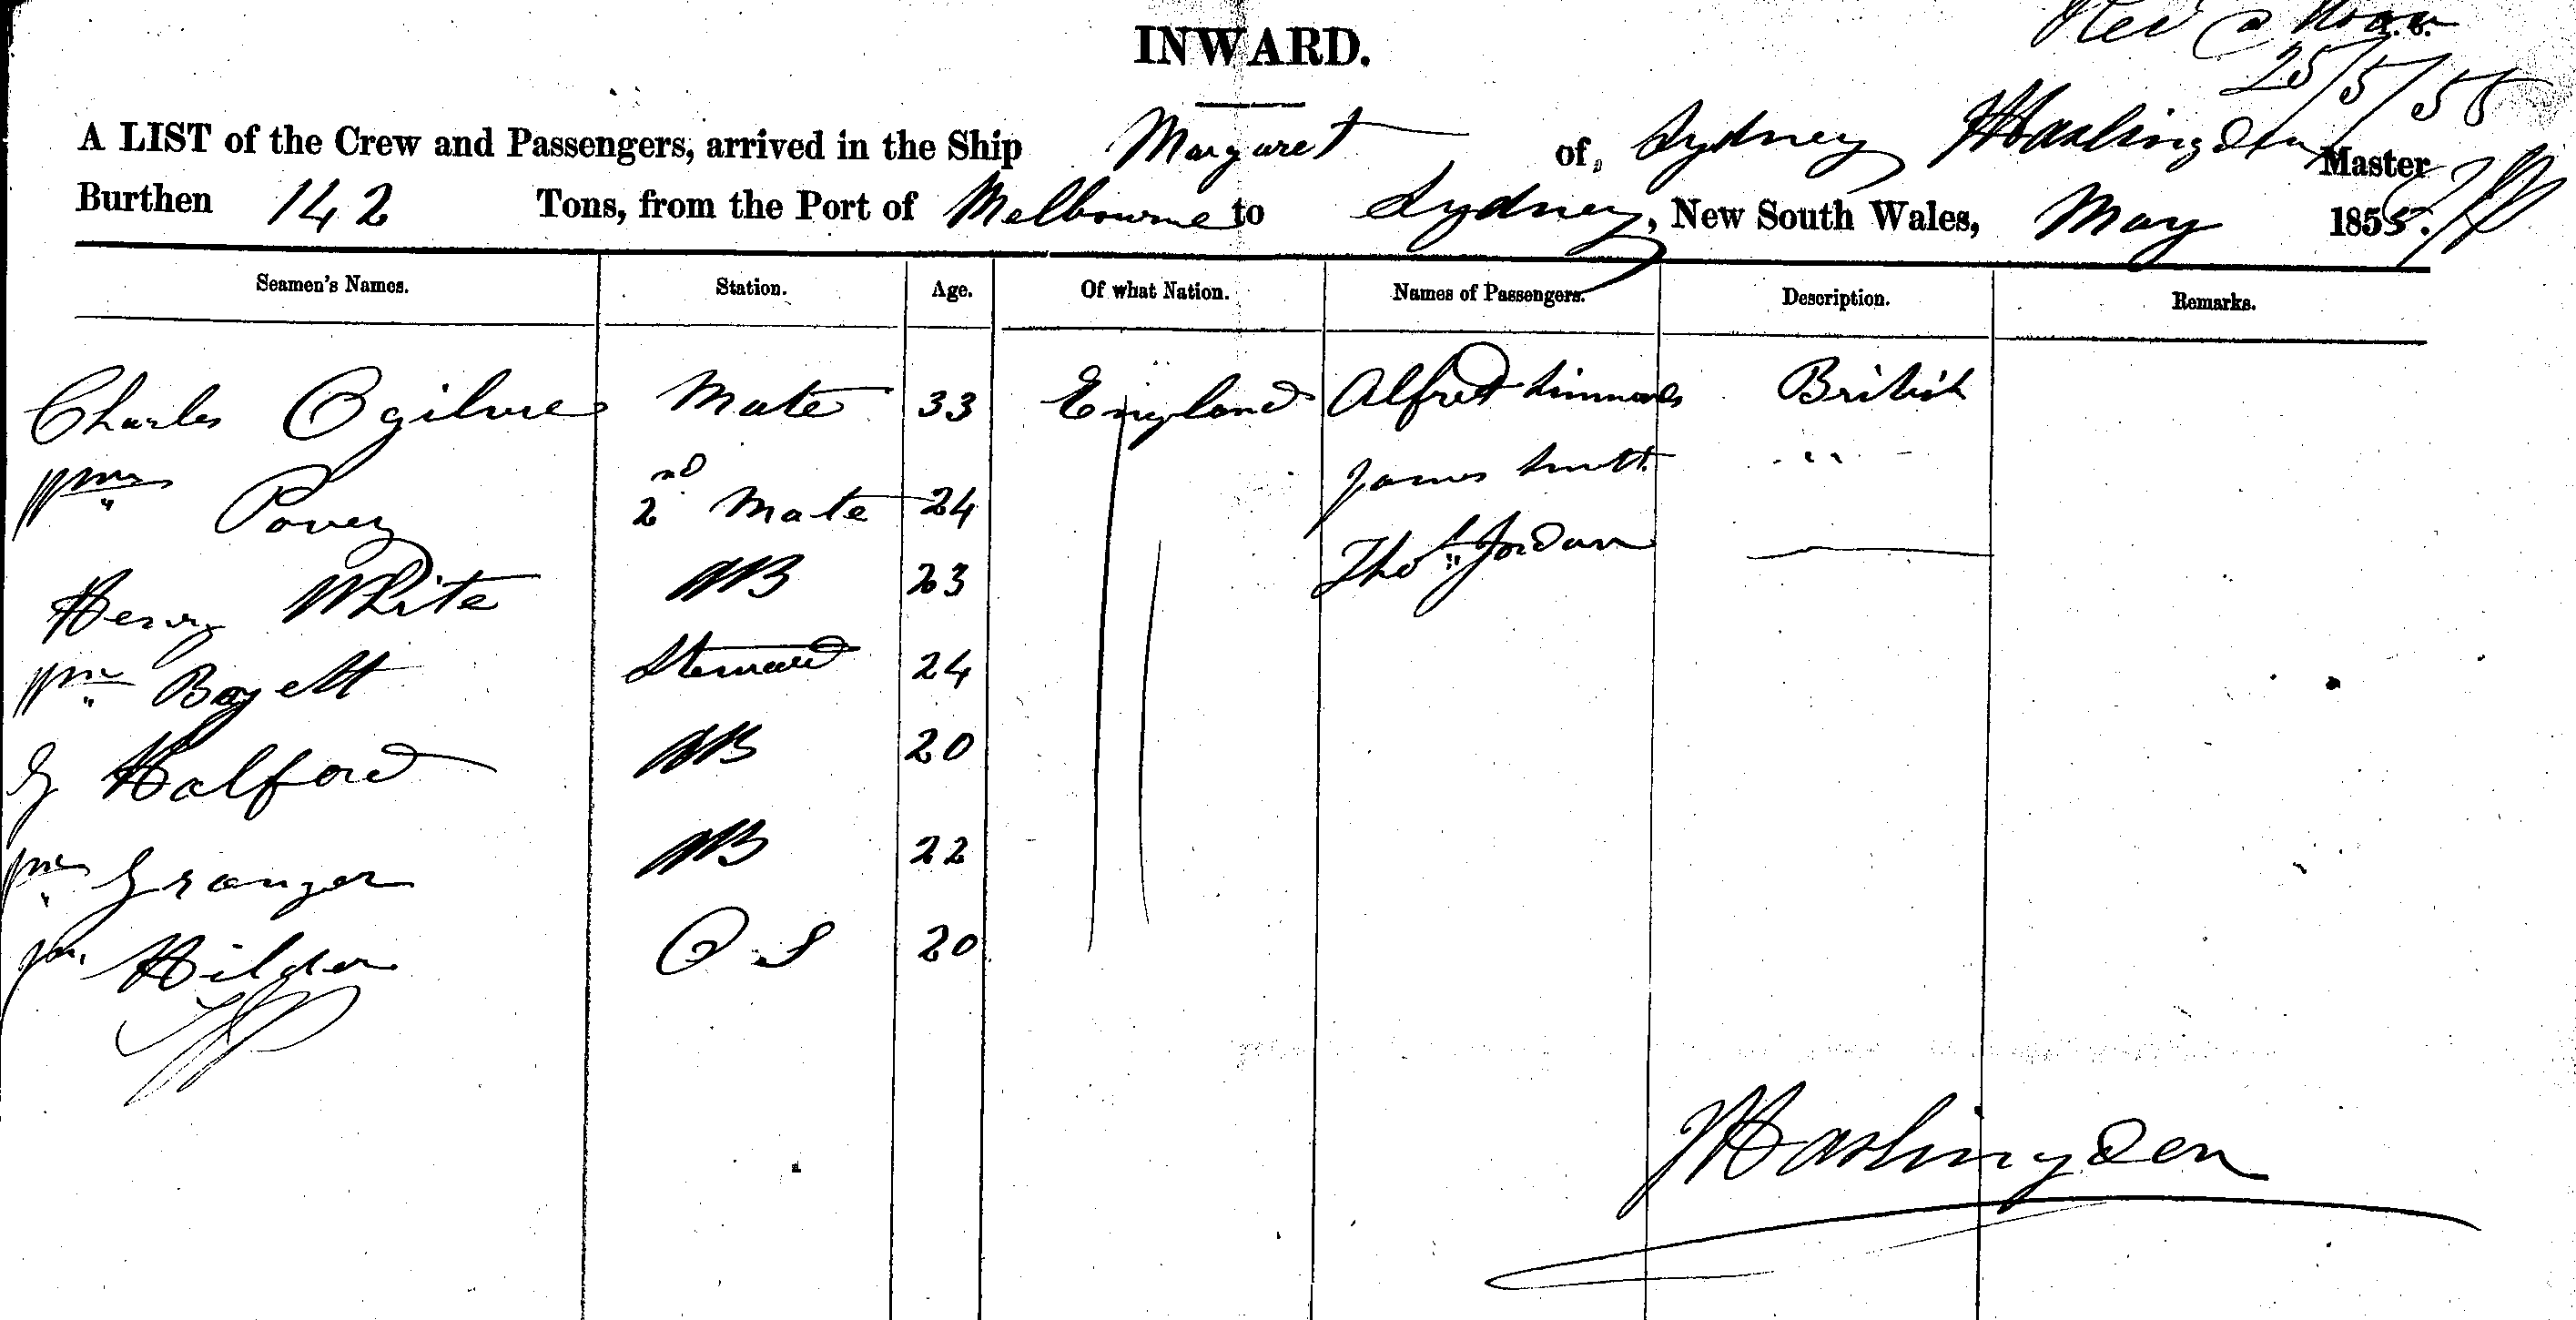 INWARD.
25/5/55
A LIST of the Crew and Passengers, arrived in the Ship Margaret of, Sydney Haslingden Master
Burthen 142 Tons, from the Port of Melbourne to Sydney, New South Wales, May 1855.
Seamen's Names. Station. Age. Of what Nation. Names of Passengers. Description. Remarks.
Charles Ogilvie Mate 33 England Alfred Simmonds British
Wm Povey 2nd Mate 24 James Smith " "
Henry White AB 23 Thos Jordan
Wm Boyett Steward 24
G Halford AB 20
Wm Granger AB 22
Hilder O.S 20
Haslingden